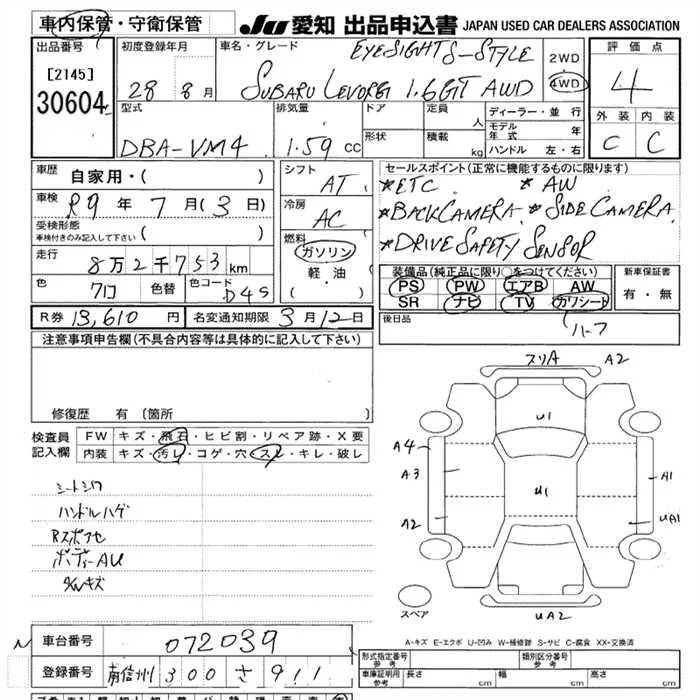 車内保管・守衛保管 JU 愛知 出品申込書 JAPAN USED CAR DEALERS ASSOCIATION
出品番号 初度登録年月 車名・グレード EYESIGHT S-STYLE 2WD 評価点
[2145] 28 8月 SUBARU LEVORG 1.6GT AWD 4WD 4
30604 型式 排気量 ドア 定員 人 ディーラー・並行 外装 内装
DBA-VM4 1.59 CC 形状 積載 kg モデル年式 年 C C
ハンドル 左・右
車歴 自家用・( ) シフト AT セールスポイント(正常に機能するものに限ります)
車検 R9年 7月(3日) 冷房 AC *ETC *AW
受検形態 ( ) *BACKCAMERA *SIDECAMERA
車検付きのみ記入して下さい 燃料 *DRIVE SAFETY SENSOR
走行 8万2千753km ガソリン
軽・油 装備品(純正品に限り○をつけてください) 新車保証書
色 クロ 色替 色コード D4S ( ) PS PW エアB AW 有・無
SR ナビ TV カワシート
R券 13,610円 名変通知期限 3月12日 後日品 ハーフ
注意事項申告欄(不具合内容等は具体的に記入して下さい)
スリA A2
修復歴 有(箇所
U1
検査員 FW キズ・飛石・ヒビ割・リペア跡・X要
記入欄 内装 キズ・汚レ・コゲ・穴・スレ・キレ・破レ
A4
A3 A1
U1
シートシワ
ハンドルハゲ A2 UA1
Rスポアセ
ボディーAU
キズ
スペア UA2
A-キズ E-エクボ U-凹み W-補修跡 S-サビ C-腐食 XX-交換済
N 車台番号 072039
登録番号 南信州 300 さ 911 形式指定番号 参考 類別区分番号 参考
車庫証明用 参考 長さ cm 幅 cm 高さ cm